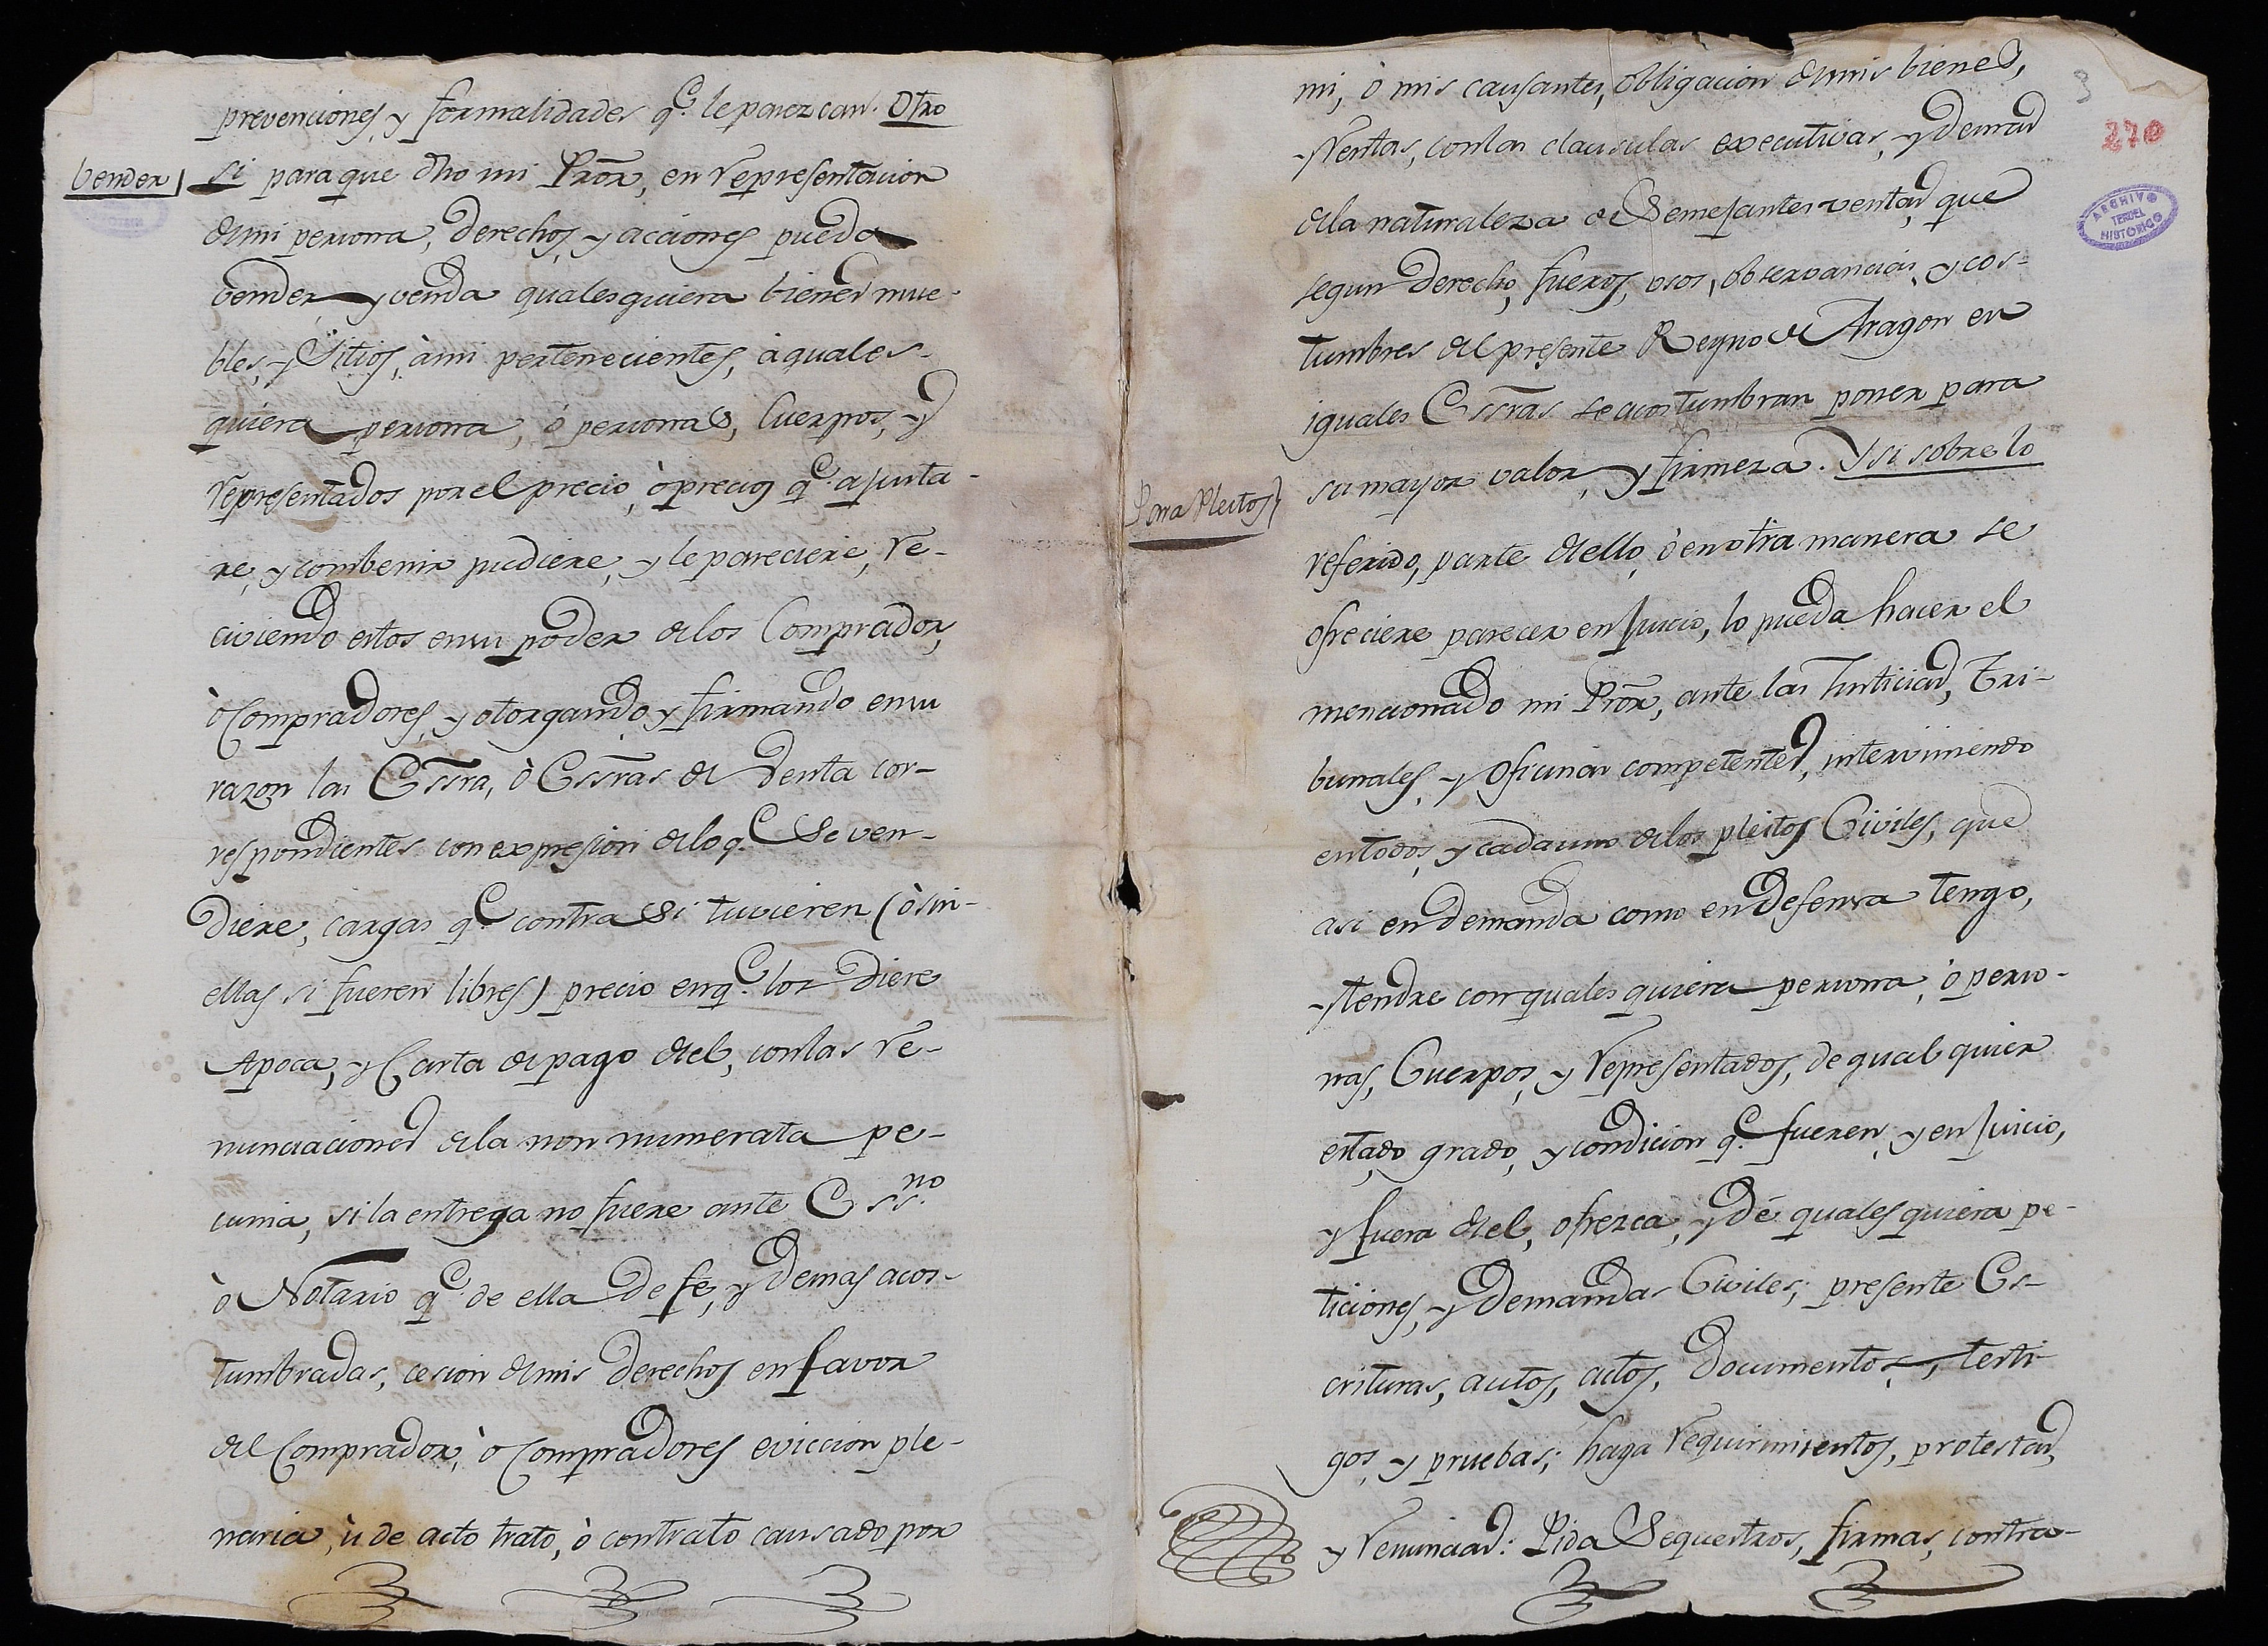 prevenciones, y formalidades q.e le parezcan. Otro
vender
si para que dho mi Pròr, en representacion
de mi persona, derechos, y acciones pueda
vender, y venda qualesquiera bienes mue-
bles, y Sitios, à mi pertenecientes, à quales-
quiera persona, ò personas, Cuerpos, y
representados por el precio, ò precios q.e ajusta-
re, y combenir pudiere, y le pareciere, re-
civiendo estos en su poder de los Comprador,
ò Compradores, y otorgando, y firmando en su
razon las Essra, ò Essras de Venta cor-
respondientes con expresion de lo q.e se ven-
diere, cargas q.e contra si tuvieren (ò sin
ellas si fueren libres) precio en q.e los diere
Apoca, y Carta de pago del, con las re-
nunciaciones de la non numerata pe-
cunia, si la entrega no fuere ante Ess.no
ò Notario q.e de ella de fe, y demas acos-
tumbradas, cesion de mis derechos en favor
del Comprador, ò Compradores eviccion ple-
naria, ù de acto trato, ò contrato causado por
3
270
ARCHIVO
TERUEL
HISTORICO
mi, ò mis causantes, obligacion de mis bienes,
y Rentas, con las clausulas executivas, y demas
de la naturaleza de Semejantes ventas, que
segun derecho, fueros, usos, observancias, y cos-
tumbres del presente Reyno de Aragon en
iguales Essras se acostumbran poner para
su mayor valor, y firmeza. Y si sobre lo
Para Pleitos
referido, parte de ello, ò en otra manera se
ofreciere parecer en Juicio, lo pueda hacer el
mencionado mi Pròr, ante las Justicias, Tri-
bunales, y Oficinas competentes, interviniendo
en todos, y cada uno de los pleitos Civiles, que
asi en demanda como en defensa tengo,
y tendre con quales quiera persona, ò perso-
nas, Cuerpos, y Representados, de qual quier
estado, grado, y condicion q.e fueren, y en Juicio,
y fuera del, ofrezca, y dé quales quiera pe-
ticiones, y demandas Civiles; presente Es-
crituras, autos, actos, Documentos, testi-
gos, y pruebas; haga requirimientos, protestas,
y renuncias: Pida Sequestros, firmas, contra-